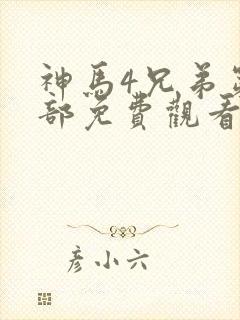 神馬4兄弟
部免費觀看
彦小六